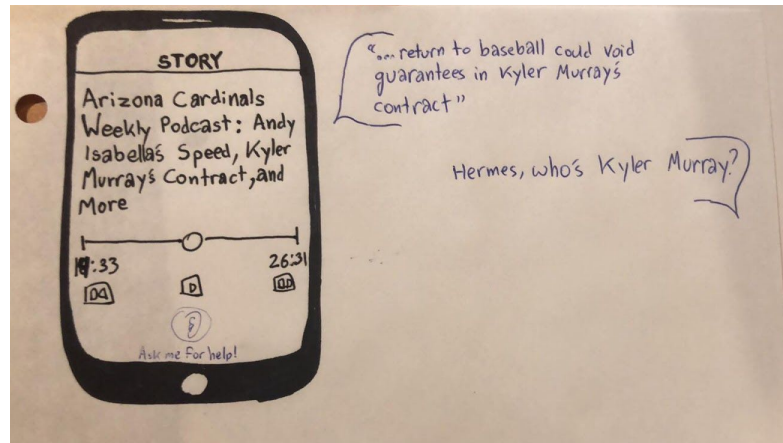 STORY
Arizona Cardinals
Weekly Podcast: Andy
Isabella's Speed, Kyler
Murray's Contract, and
More
:33
26:31
Ask me for help!
"... return to baseball could void
guarantees in Kyler Murray's
contract"
Hermes, who's Kyler Murray?